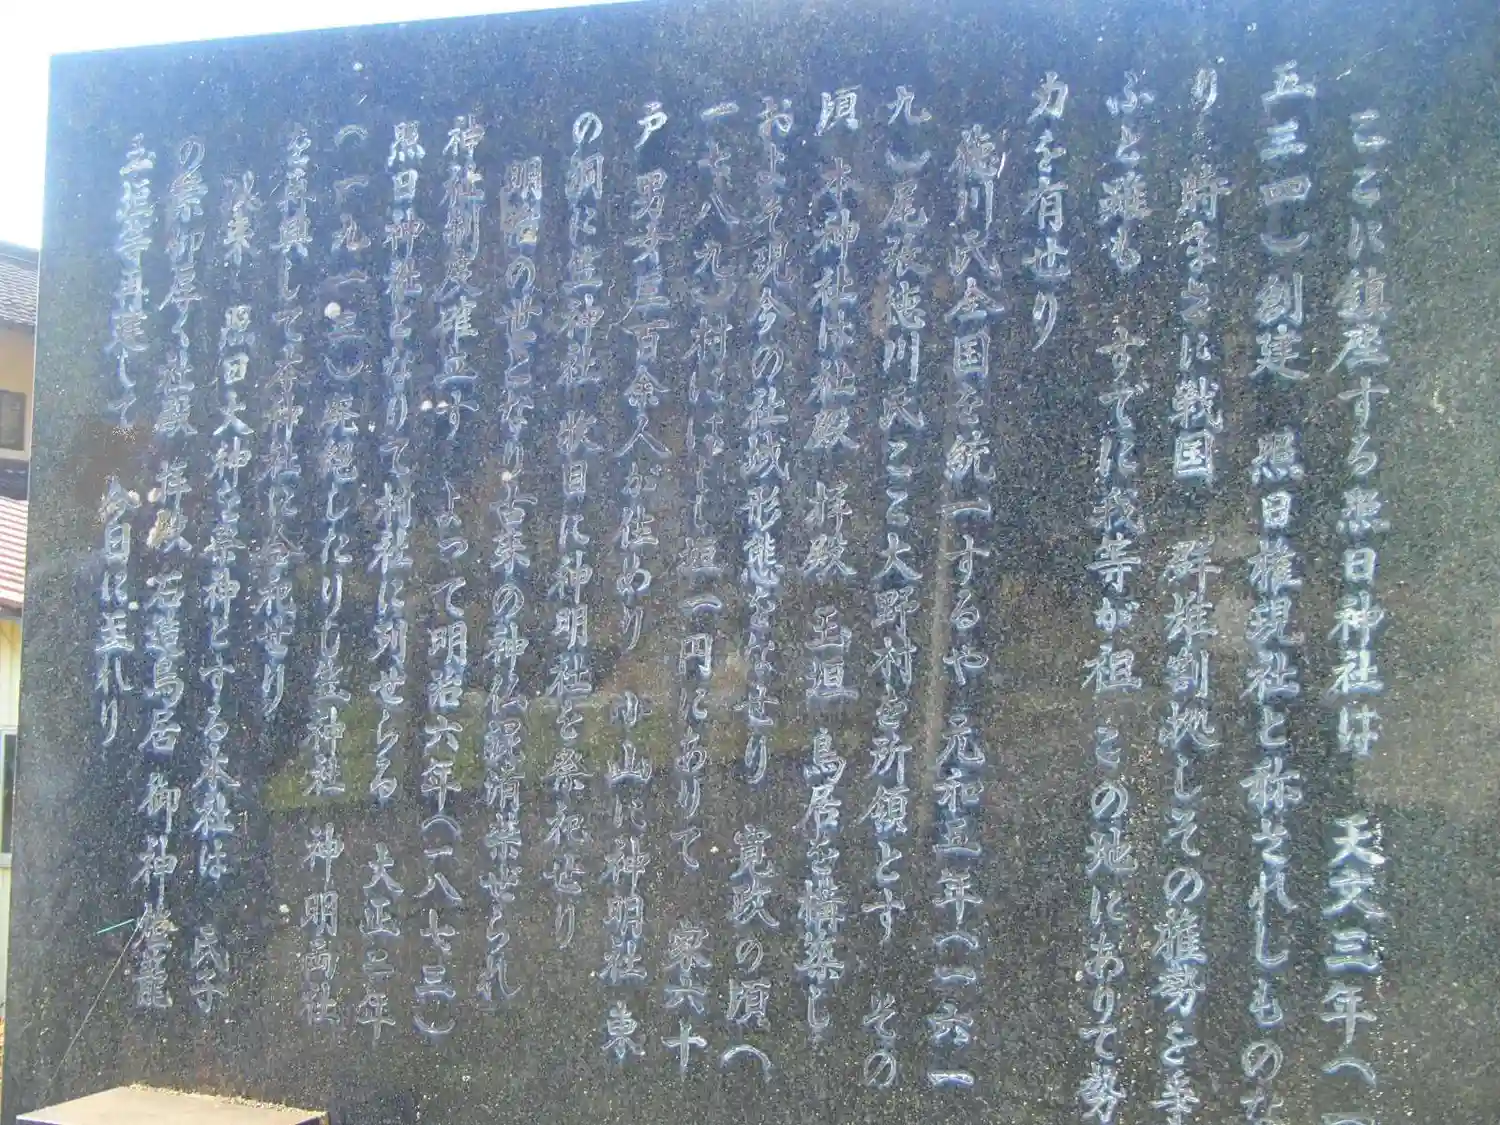 ここに鎮座する照日神社は 天文三年(一
五三四)創建 照日権現社と称されしものな
り 時まさに戦国 群雄割拠しその雄勢を争
ふと雖も すでに我等が祖 この地にありて勢
力を有せり
徳川氏全国を統一するや 元和五年(一六一
九)尾張徳川氏ここ大野村を所領とす その
頃 本神社は社殿 拝殿 玉垣 鳥居を構築し
およそ現今の社域形態をなせり 寛政の頃(
一七八九)村にはよし垣一円にありて 家六十
戸 男女屋百余人が住めり 小山に神明社 東
の洞に生神社 牧目に神明社を祭祀せり
明治の世となり古来の神仏混淆禁ぜられ
神社制度確立す よって明治六年(一八七三)
照日神社となりて村社に列せらる 大正二年
(一九一三)廃絶したりし生神社 神明両社
を再興して本神社に合祀せり
以来 照日大神を祭神とする本社は 氏子
の崇仰厚く社殿 拝殿 石造鳥居 御神燈籠
玉垣等再建して 今日に至れり